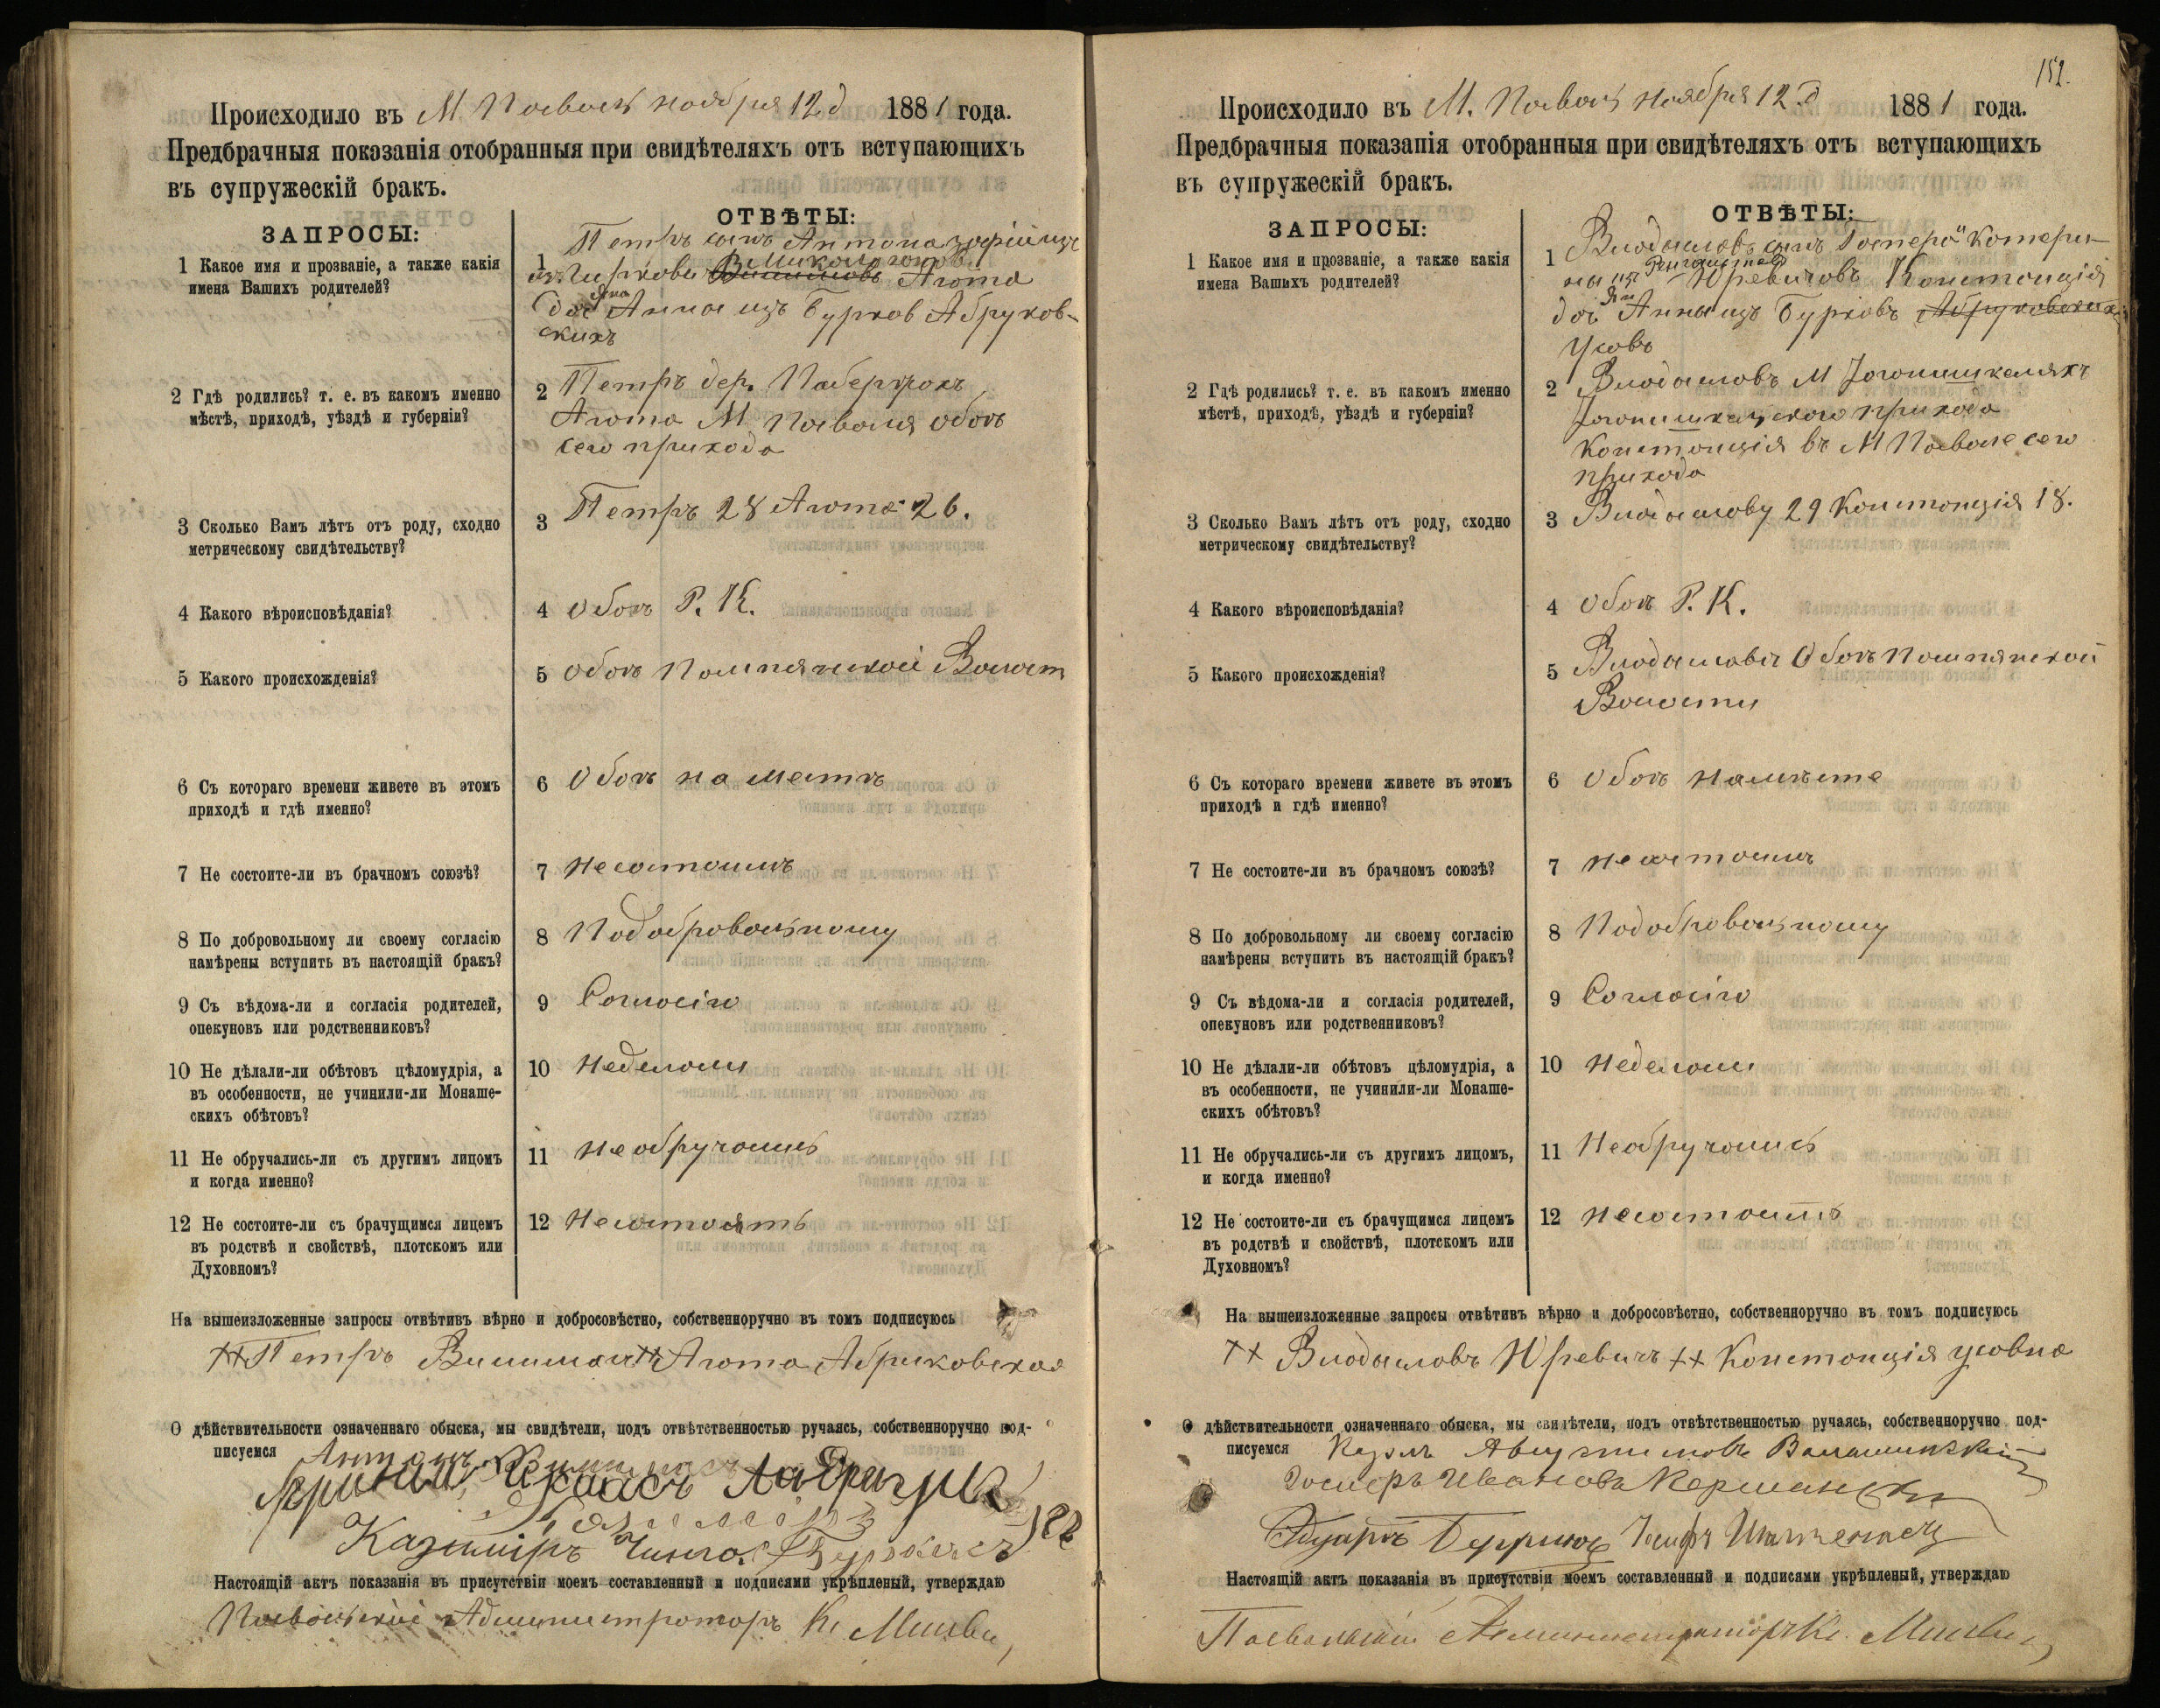 Происходило въ М Посволь ноября 12 д 1881 года.
Предбрачныя показанія отобранныя при свидѣтеляхъ отъ вступающихъ
въ супружескій бракъ.
ЗАПРОСЫ:
ОТВѢТЫ:
1 Какое имя и прозваніе, а также какія
имена Вашихъ родителей?
1 Петръ сынъ Антона
Агота
доч Яна Анна изъ Бурков Абруков-
скихъ
2 Гдѣ родились? т. е. въ какомъ именно
мѣстѣ, приходѣ, уѣздѣ и губерніи?
2 Петръ дер.
Агота М Посволя обоъ
сего прихода
3 Сколько Вамъ лѣтъ отъ роду, сходно
метрическому свидѣтельству?
3 Петръ 28 Агота 26.
4 Какого вѣроисповѣданія?
4 Обоъ Р. К.
5 Какого происхожденія?
5 Обоъ Помпянской Волост
6 Съ котораго времени живете въ этомъ
приходѣ и гдѣ именно?
6 Обоъ на местъ
7 Не состоите-ли въ брачномъ союзѣ?
7 Несостоимъ
8 По добровольному ли своему согласію
намѣрены вступить въ настоящій бракъ?
8 Подобровольному
9 Съ вѣдома-ли и согласія родителей,
опекуновъ или родственниковъ?
9 Согласію
10 Не дѣлали-ли обѣтовъ цѣломудрія, а
въ особенности, не учинили-ли Монаше-
скихъ обѣтовъ?
10 Неделали
11 Не обручались-ли съ другимъ лицомъ
и когда именно?
11 Необручались
12 Не состоите-ли съ брачущимся лицемъ
въ родствѣ и свойствѣ, плотскомъ или
Духовномъ?
12 Несостоятъ
На вышеизложенные запросы отвѣтивъ вѣрно и добросовѣстно, собственноручно въ томъ подписуюсь
++ Петръ ++ Агота Абриковская
О дѣйствительности означеннаго обыска, мы свидѣтели, подъ отвѣтственностью ручаясь, собственноручно под-
писуемся Антонъ
Казимиръ
Настоящій актъ показанія въ присутствіи моемъ составленный и подписями укрѣпленый, утверждаю
Посвольскій Администраторъ Кс
152.
Происходило въ М. Посволь Ноября 12 д 1881 года.
Предбрачныя показанія отобранныя при свидѣтеляхъ отъ вступающихъ
въ супружескій бракъ.
ЗАПРОСЫ:
ОТВѢТЫ:
1 Какое имя и прозваніе, а также какія
имена Вашихъ родителей?
1 Влодиславъ сынъ Гаспера Катери-
на изъ Юревичовъ Констанція
доч Яна Анны изъ Бурковъ Абруковских
Усовъ
2 Гдѣ родились? т. е. въ какомъ именно
мѣстѣ, приходѣ, уѣздѣ и губерніи?
2 Влодиславъ М Іоганишкеляхъ
прихода
Констанція въ М Посволе сего
прихода
3 Сколько Вамъ лѣтъ отъ роду, сходно
метрическому свидѣтельству?
3 Влодиславу 29 Констанція 18.
4 Какого вѣроисповѣданія?
4 Обоъ Р. К.
5 Какого происхожденія?
5 Обоъ Помпянской
Волости
6 Съ котораго времени живете въ этомъ
приходѣ и гдѣ именно?
6 Обоъ наместе
7 Не состоите-ли въ брачномъ союзѣ?
7 Несостоимъ
8 По добровольному ли своему согласію
намѣрены вступить въ настоящій бракъ?
8 Подобровольному
9 Съ вѣдома-ли и согласія родителей,
опекуновъ или родственниковъ?
9 Согласію
10 Не дѣлали-ли обѣтовъ цѣломудрія, а
въ особенности, не учинили-ли Монаше-
скихъ обѣтовъ?
10 Неделали
11 Не обручались-ли съ другимъ лицомъ,
и когда именно?
11 Необручались
12 Не состоите-ли съ брачущимся лицемъ
въ родствѣ и свойствѣ, плотскомъ или
Духовномъ?
12 Несостоитъ
На вышеизложенные запросы отвѣтивъ вѣрно и добросовѣстно, собственноручно въ томъ подписуюсь
++ Влодиславъ Юревичъ ++ Констанція Усовна
О дѣйствительности означеннаго обыска, мы свидѣтели, подъ отвѣтственностью ручаясь, собственноручно под-
писуемся
Госперъ Иванова
Эдуардъ
Настоящій актъ показанія въ присутствіи моемъ составленный и подписями укрѣпленый, утверждаю
Посвольскій Администраторъ Кс.